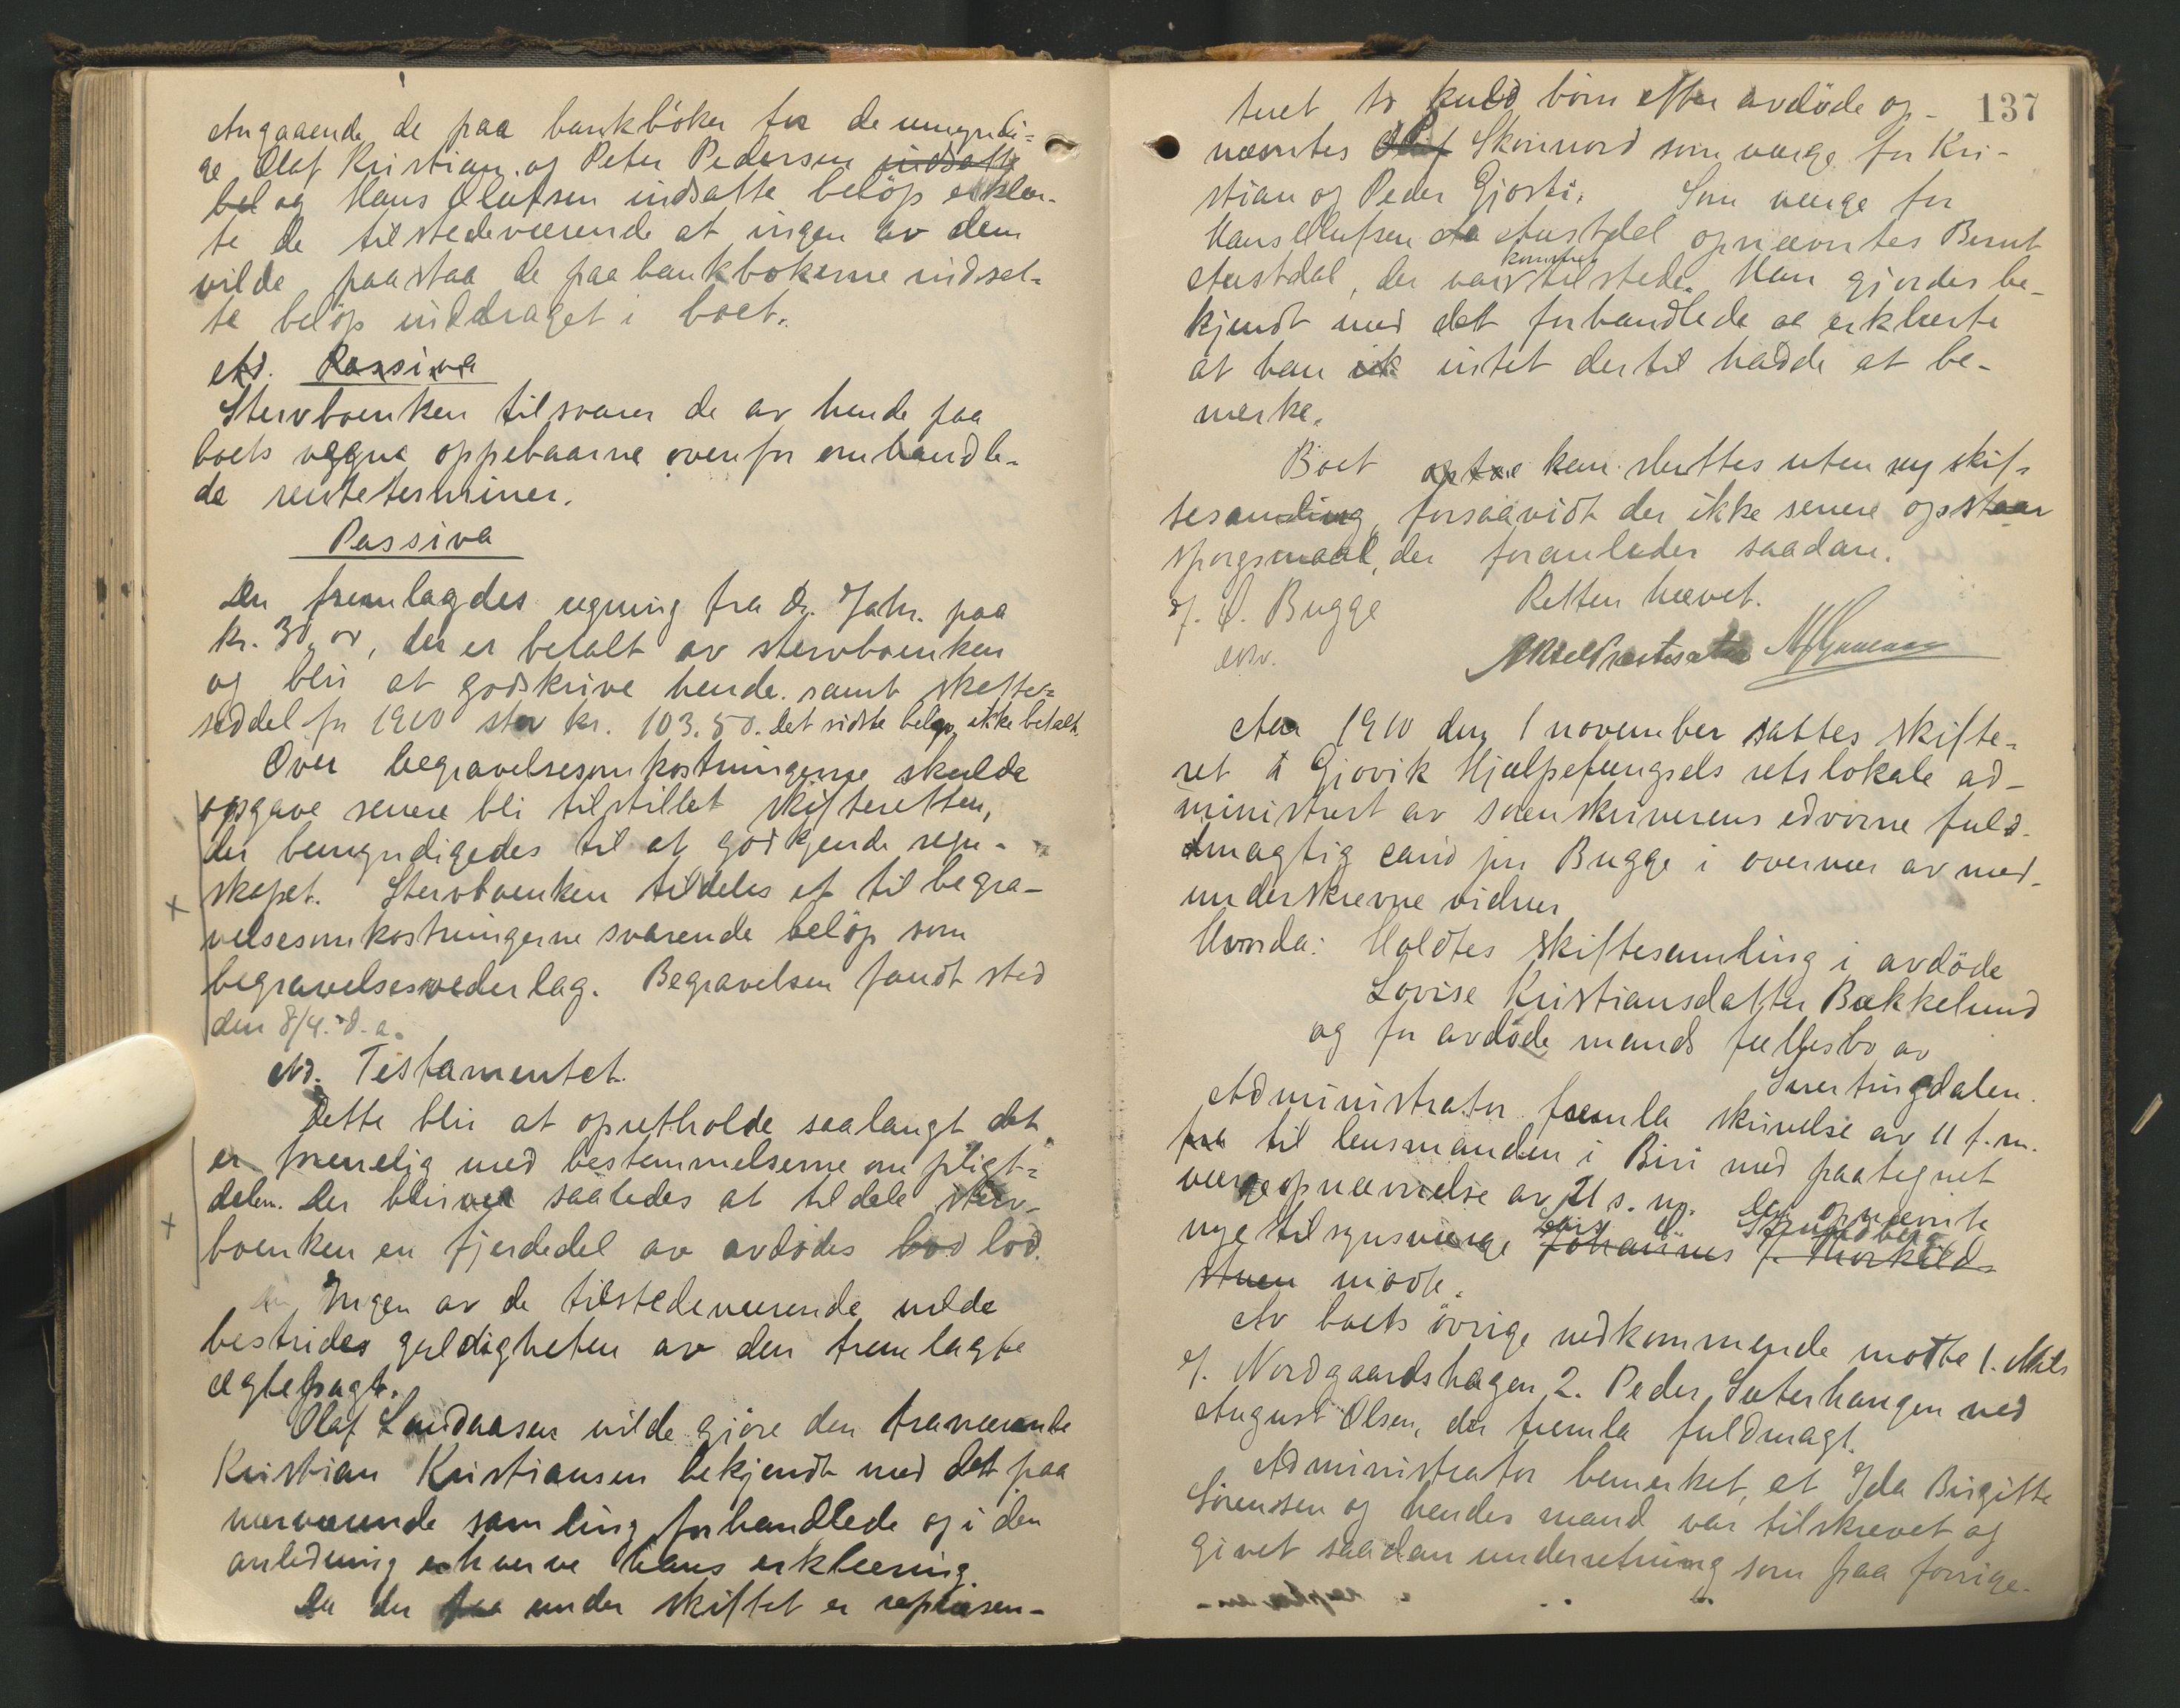 Angaaende de paa bankböker for de umyndi=
ge Olaf Kristian og Peter Pedersen indsatte
bel og Hans Olafsen indsatte belöp erklær-
te de tilstedeværende at ingen av dem
vilde paastaa de paa bankbökerne indsat-
te belöp inddraget i boet.
Ad. Passiva
Stervboenken tilsvarer de av hende paa
boets vegne oppebaarne ovenfor omhandle-
de renteterminer.
Passiva
Der fremlagdes regning fra Dr. Jahr. paa
kr. 30,00, der er betalt av stervboenken
og blir at godskrive hende. samt skatte=
seddel for 1910 stor kr. 103.50. det sidste belöp ikke betalt.
Over begravelsesomkostningerne skulde
opgave senere bli tilstillet skifteretten,
der bemyndigedes til at godkjende regn-
skapet. Stervboenken tildeles et til begra-
velsesomkostningerne svarende belöp som
begravelsesvederlag. Begravelsen fandt sted
den 8/4. d. a.
Ad. Testamentet.
Dette blir at opretholde saalangt det
er forenelig med bestemmelserne om pligt=
delen. Der blir saaledes at tildele sterv-
boenken en fjerdedel av avdödes bod lod.
Ingen av de tilstedeværende vilde
bestrides gyldigheten av den fremlagte
ægtepagt.
Olaf Landaasen vilde gjöre den fraværende
Kristian Kristiansen bekjendt med det paa
nærværende samling forhandlede og i den
anledning erhverve hans erklæring.
Da der paa under skiftet er repræsen-
137
teret to kuld börn efter avdöde op-
nævntes Olaf Skonnord som værge for Kri-
stian og Peder Gjösti. Som værge for
Hans Olufsen Austdal opnævntes Bernt
kommet
Austdal, der var tilstede. Han gjordes be-
kjendt med det forhandlede og erklærte
at han ik intet dertil hadde at be-
merke.
Boet kan sluttes uten ny skif=
tesamling, forsaavidt der ikke senere opstaar
spörgsmaal, der foranleder saadan.
Retten hævet.
J. O. Bugge
edsv.
Aar 1910 den 1 november sattes skifte=
ret i Gjövik Hjælpefængsels retslokale ad-
ministrert av sorenskriverens edsvorne fuld-
dmægtig cand jur Bugge i overvær av med-
underskrevne vidner
Hvorda: Holdtes skiftesamling i avdöde
Lovise Kristiansdatter Bakkelund
og for avdöde mands fællesbo av
Snertingdalen.
Administrator fremla skrivelse av 11 f. m.
fra til lensmanden i Biri med paategnet
værgeopnævnelse av 21 s. m. Den opnævnte
Lars Strandberg
nye tilsynsværge Johannes J. Thorkild-
stuen mödte.
Av boets övrige vedkommende mötte 1. Nils
J. Nordgaardshagen 2. Peder Sæterhaugen ved
August Olsen, der fremla fuldmagt.
Administrator bemerket, at Ida Birgitte
Sörensen og hendes mand var tilskrevet og
givet saadan underretning som paa forrige-